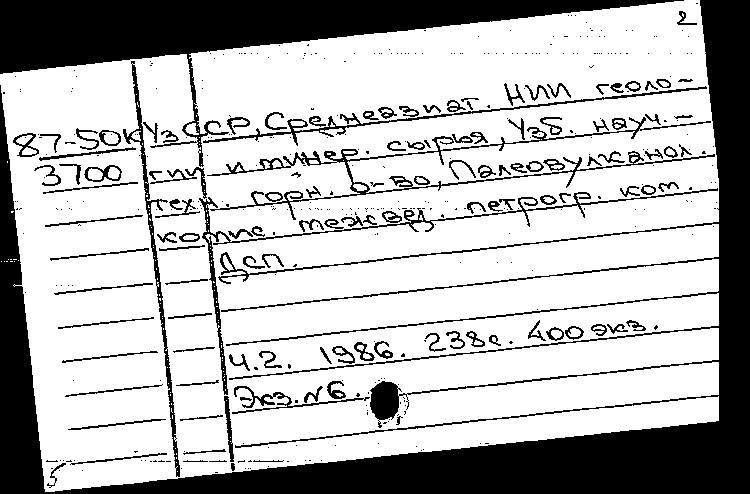 2
87-50К УзССР, Среднеазиат. НИИ геоло-
3700 гии и минер. сырья, Узб. науч.-
техн. горн. о-во, Палеовулканол.
комис. межвед. петрогр. ком.
ДСП.
Ч.2. 1986. 238с. 400экз.
Экз.№6.
5